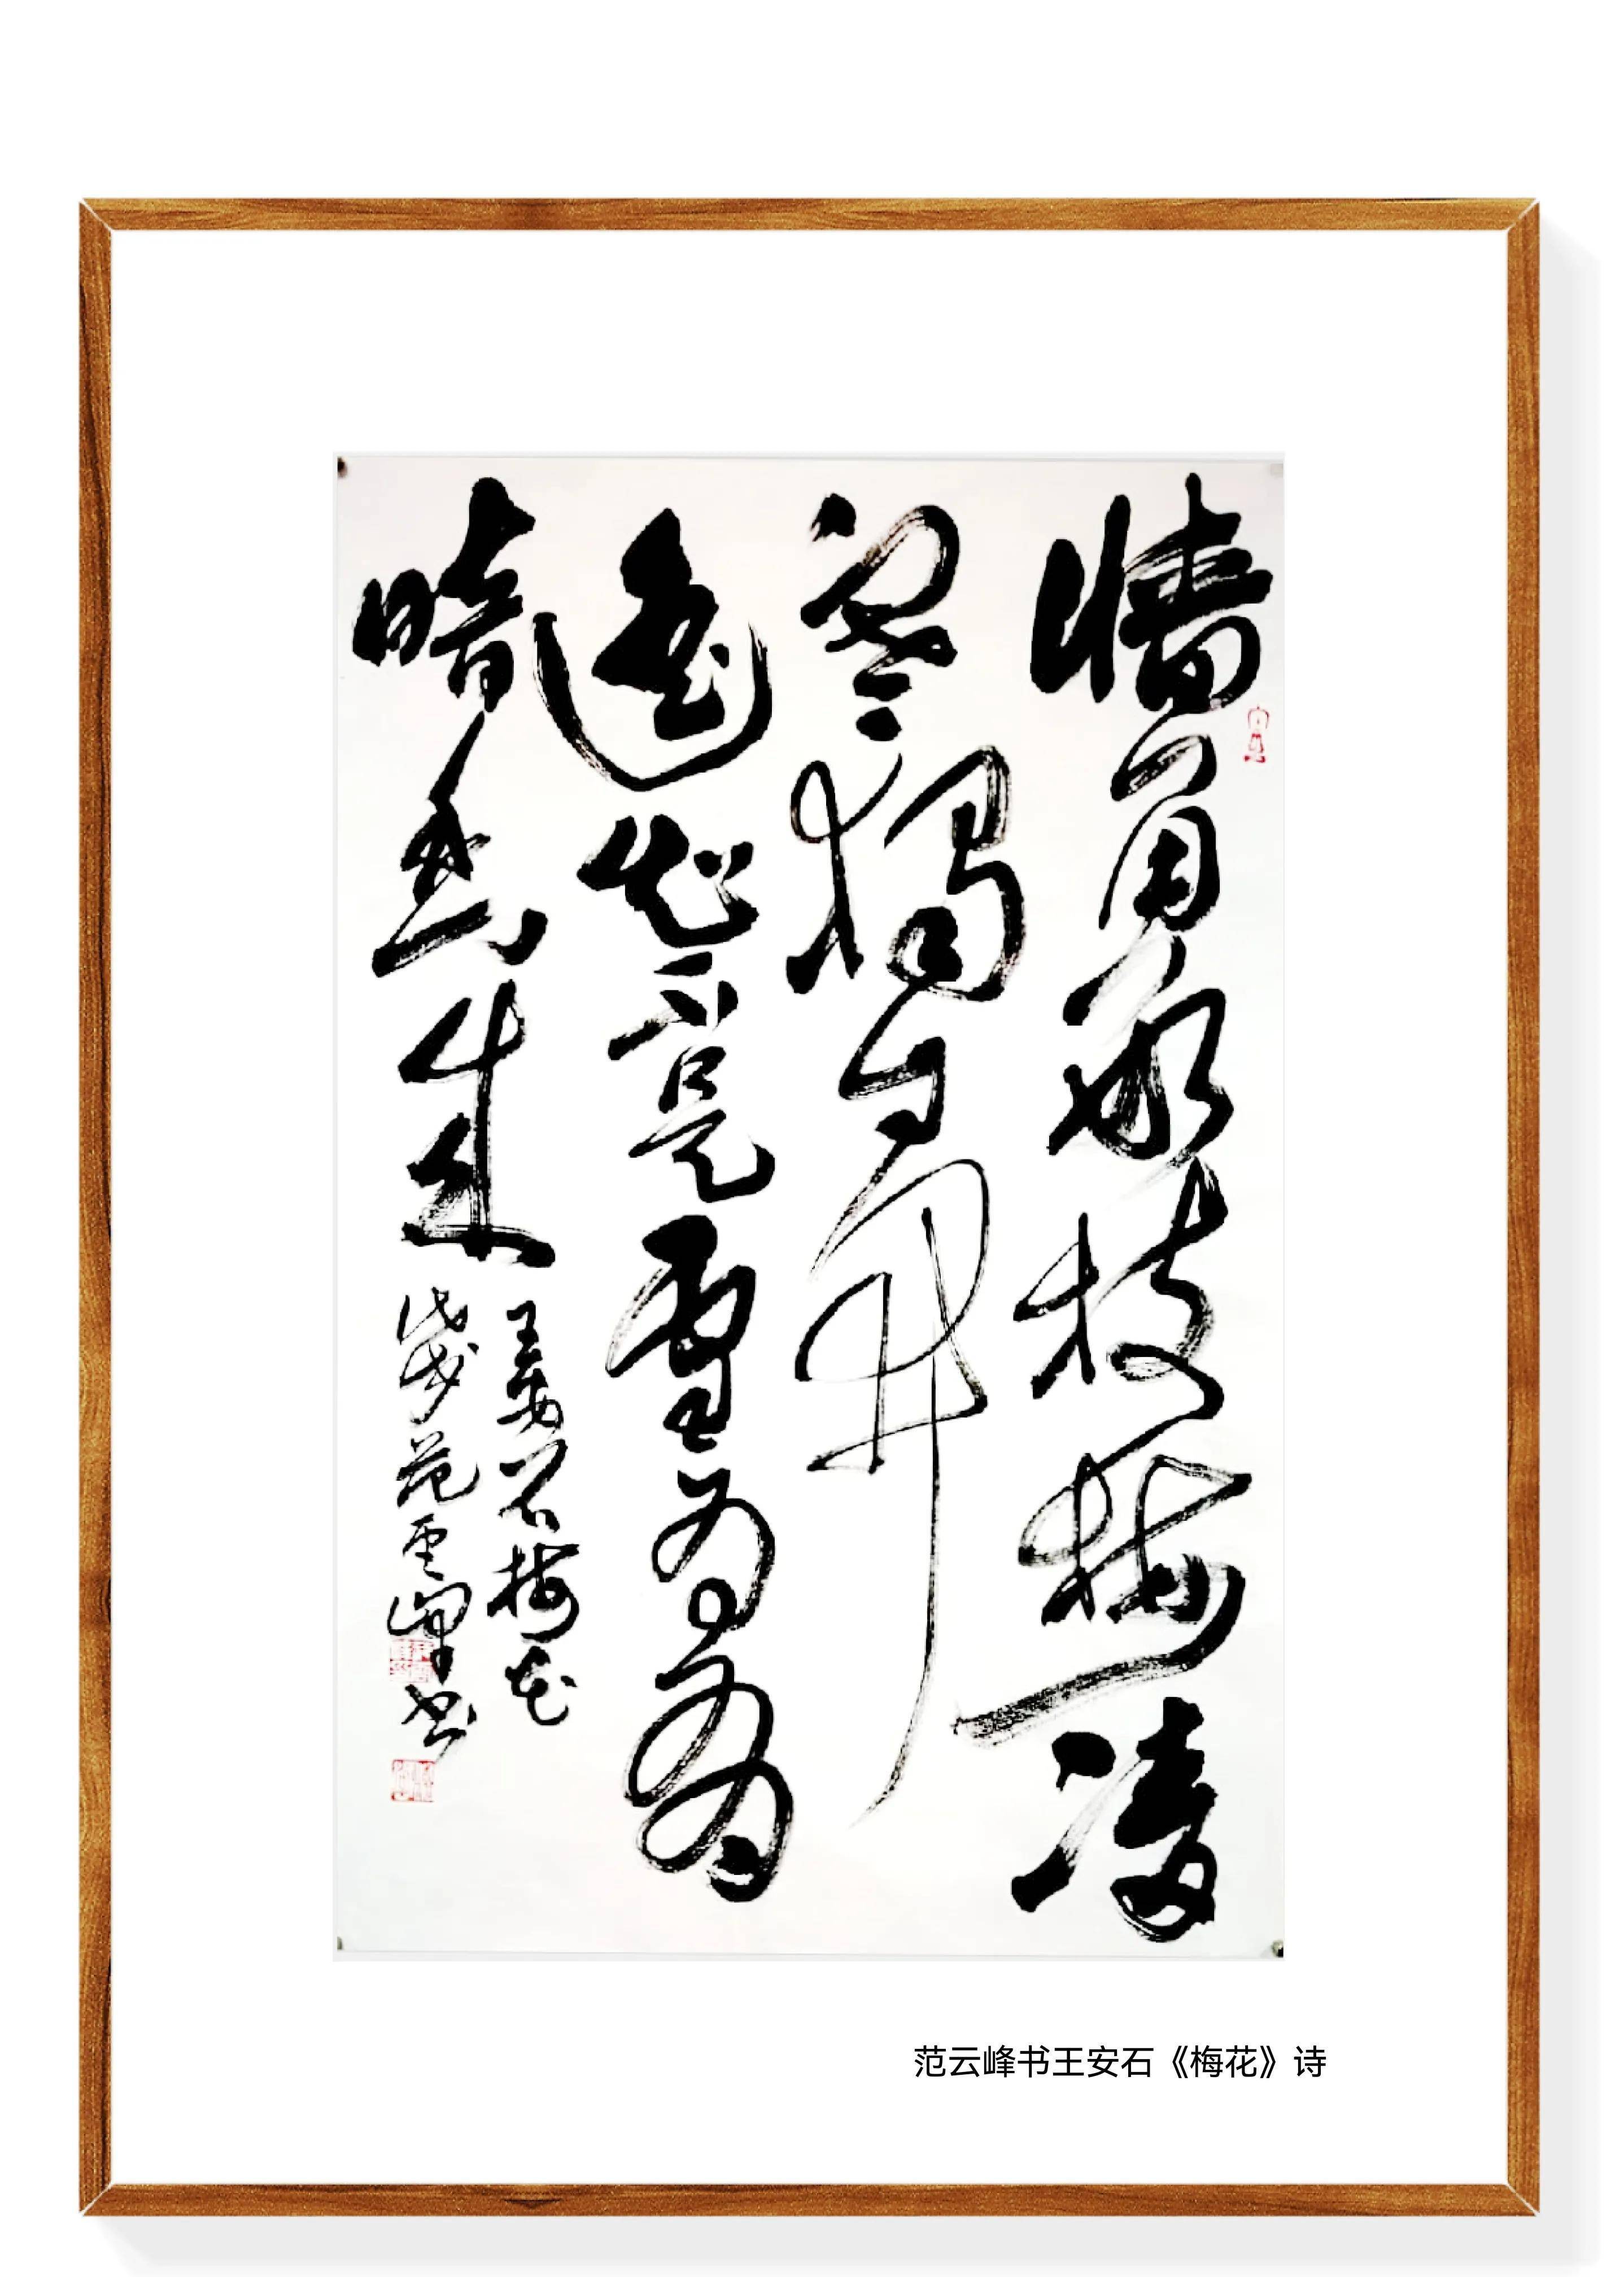 牆角数枝梅凌
寒獨自開
遥知不是雪为有
暗香来
王安石梅花
范云峰书
范云峰书王安石《梅花》诗